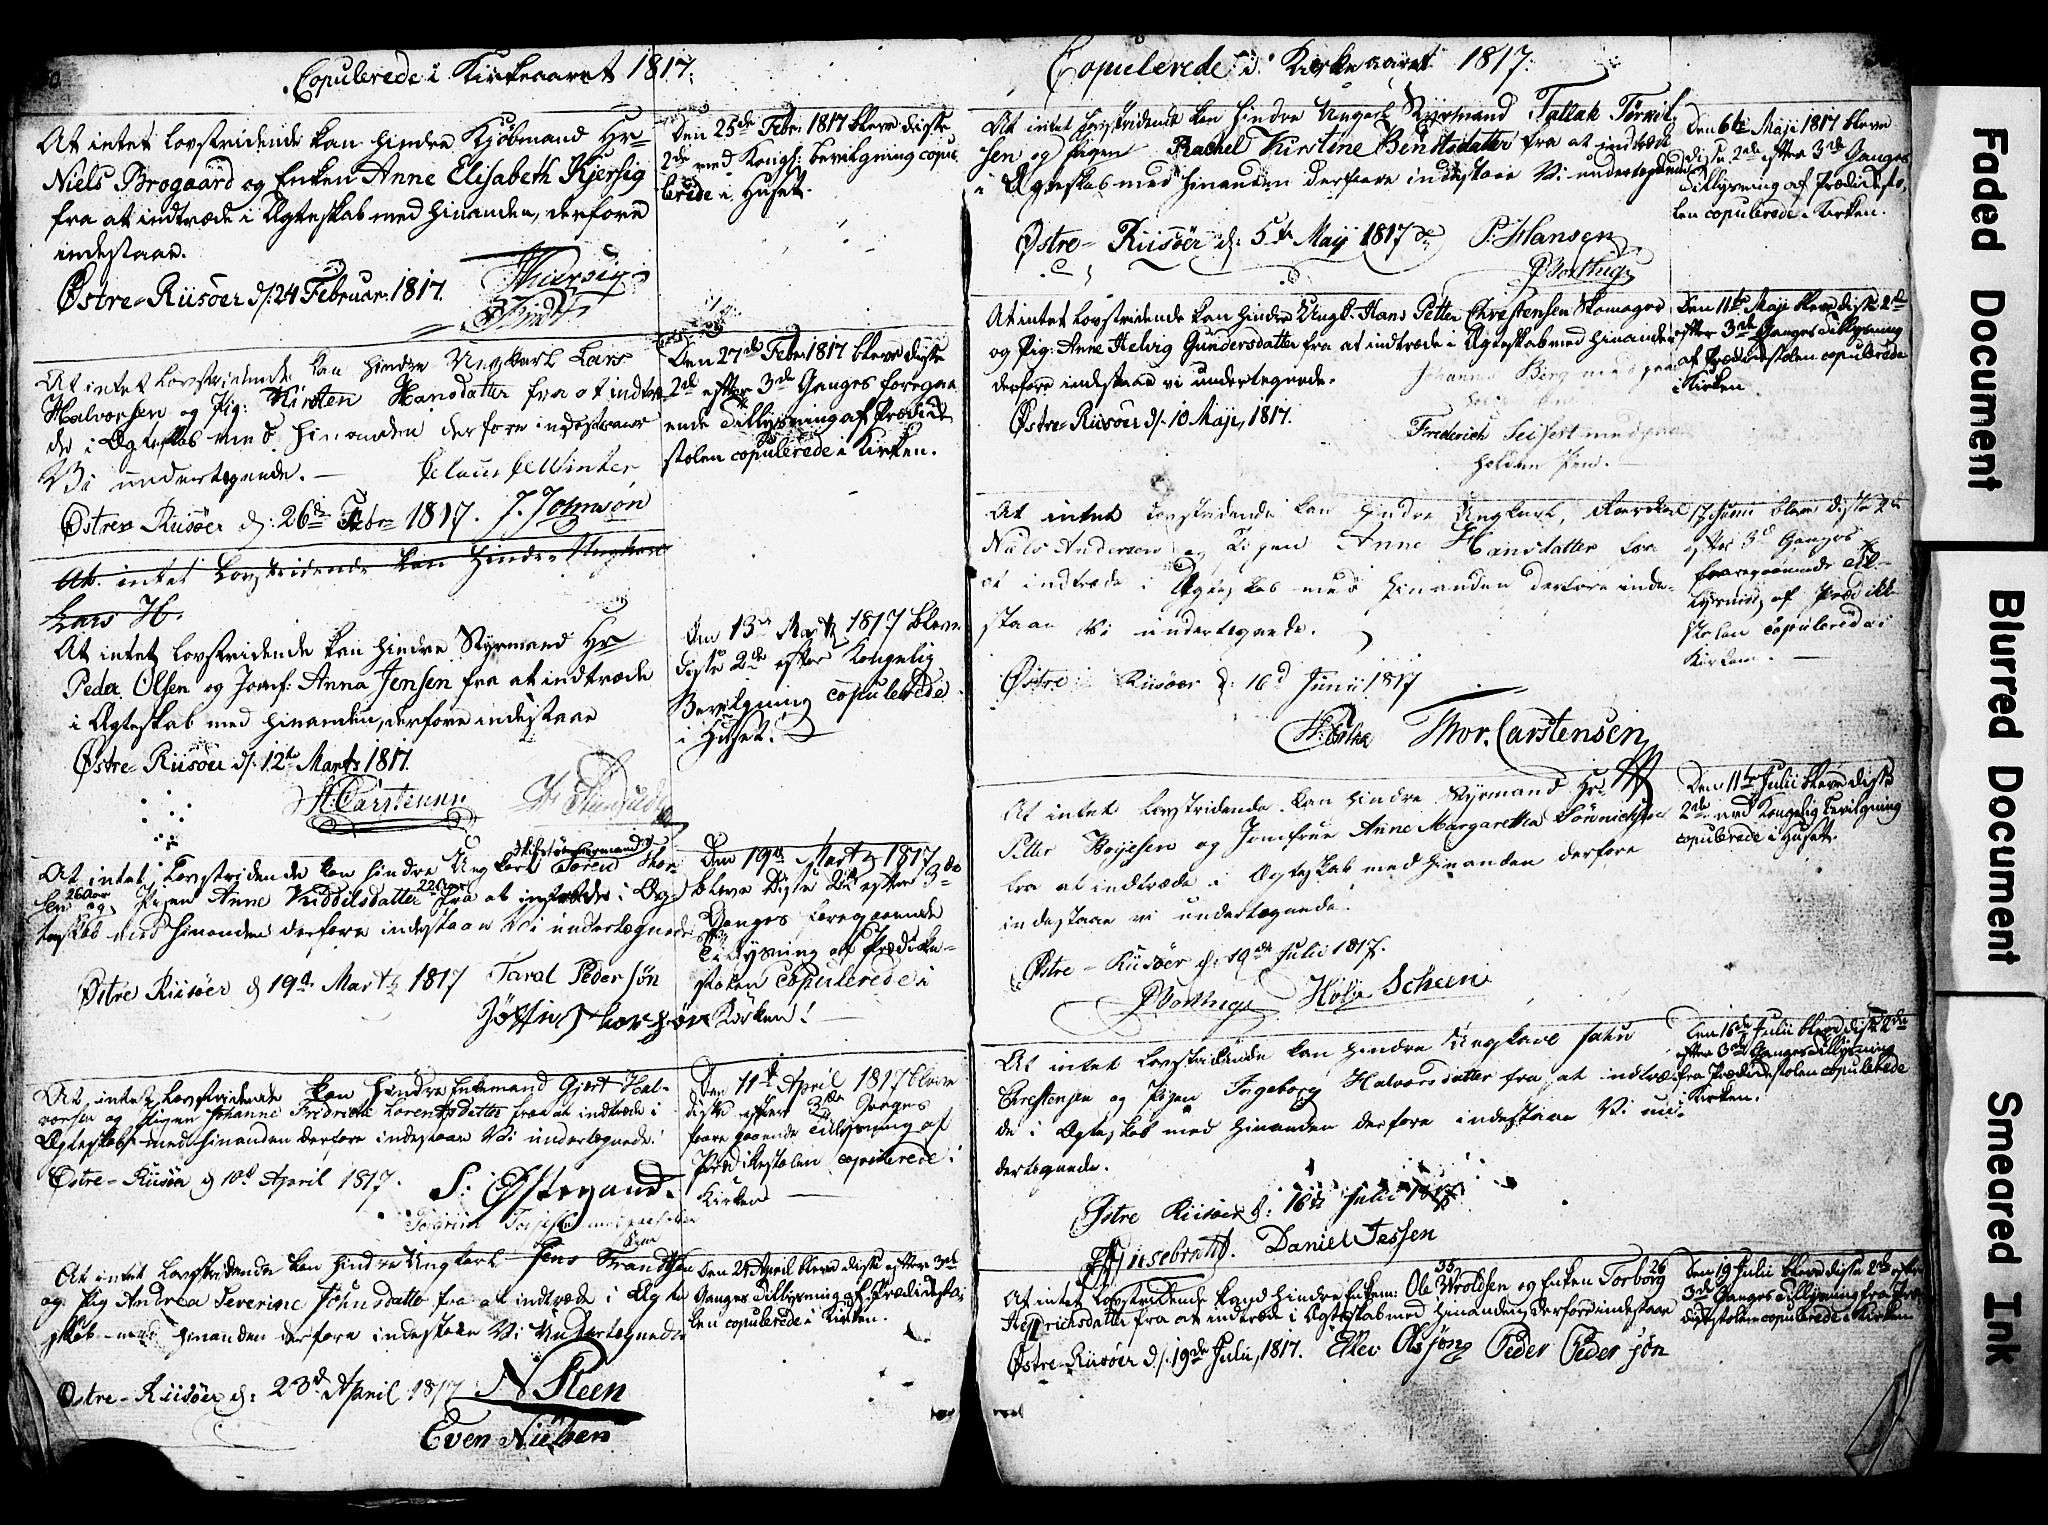 Copulerede i Kirkeaaret 1817.
At intet lovstridende kan hindre Kjøbmand Hr
Niels Brogaard og Enken Anne Elisabeth Kjersig
fra at indtræde i Ægteskab med hinanden, derfore
indestaae.
Østre-Riisøer d. 24 Februar 1817.
Den 25de Febr 1817 bleve disse
2de med Kongl: Bevilgning copu
lerede i Huset.
At intet lovstridende kan hindre Ungkarl Lars
Halvorsen og Pig: Kirsten Hansdatter fra at indtræ
de i Ægteskab med hinanden derfore indestaaer
Vi undertegnede.
Claus C Winter
Østre Riisøer d: 26de Febr 1817. J. Johnsøn
Den 27de Febr 1817 bleve disse
2de efter 3de Ganges foregaa
ende Tillysning af Prædike
stolen copulerede i Kirken.
At intet Lovstridende kan hindre Ungkarl
Lars H.
At intet lovstridende kan hindre Styrmand Hr
Peder Olsen og Jomf: Anna Jensen fra at indtræde
i Ægteskab med hinanden, derfore indestaae
Østre-Riisøer d. 12te Marts 1817.
Den 13de Marts 1817 bleve
disse 2de efter Kongelig
Bevilgning copulerede
i Huset.
At intet Lovstridende kan hindre Ungkarl Søren Thor
sen 26 Aar og Pigen Anne Kiddilsdatter 22 Aar fra at indtræde i Æg
teskab med hinanden derfore indestaae Vi undertegnede
Østre Riisøer d 19de Marts 1817 Taral Pedersøn
Den 19de Marts 1817
bleve disse 2de efter 3de
Ganges foregaaende
Tillysning af Prædike-
stolen copulerede i
Kirken!
At intet Lovstridende kan hindre Enkemand Gjert Hal-
vorsen og Pigen Johanne Fridricke Lorentsdatter fra at indtræde i
Ægteskab med hinanden derfore indestaae Vi undertegnede.
Østre-Riisøer d 10de April 1817.
Den 11te April 1817 bleve
disse efter 3de Ganges
foregaaende Tillysning af
Prædikestolen copulerede i
Kirken
At intet Lovstridende kan hindre Ungkarl Jens Frandsen
og Pig Andrea Severine Johnsdatter fra at indtræde i Ægte
skab med hinanden derfore indestaae Vi Undertegnede
Østre-Riisøer d: 23de April 1817 N Steen
Even Nielsen
Den 24 April bleve disse efter 3de
Ganges Tillysning af Prædikesto
len copulerede i Kirken.
Copulerede i Kirkeaaret 1817.
At intet Lovstridende kan hindre Ungkl Styrmand Tallak Tørris
sen og Pigen Rachel Kirstine Bentsdatter fra at indtræde
i Ægteskab med hinanden derfore indestaae Vi undertegnede
Østre-Riisøer d: 5te Maij 1817 P. Hansen
Den 6te Maji 1817 bleve
disse 2de efter 3de Ganges
Tillysning af Prædikesto
len copulerede i Kirken.
At intet lovstridende kan hindre Ungk. Hans Petter Christensen Skomager
og Pig: Anne Helvig Gundersdatter fra at indtræde i Ægteskab med hinanden
derfore indestaae vi undertegnede.
Johannes Berg med paa
Østre-Riisøer d. 10 Maji, 1817.
Frederich Seifert med paa
holden Pen.
Den 11te Maji bleve disse 2de
efter 3de Ganges Tillysning
af Prædikestolen copulerede
i Kirken
At intet Lovstridende kan hindre Ungkarl
Niels Andersen og Pigen Anne Hansdatter fra
at indtræde i Ægteskab med hinanden derfore inde-
staae Vi undertegnede.
Østre Riisøer d: 16d Junii 1817
Thor. Carstensen
17 Junii bleve disse 2de
efter 3d Ganges
foregaaende Til-
lysning af Prædike
stolen copulerede i
Kirken.
At intet lovstridende kan hindre Styrmand Hr
Petter Boyesen og Jomfrue Anne Margaretha Sønnichsen
fra at indtræde i Ægteskab med hinanden derfore
indestaae vi undertegnede.
Østre-Riisøer d: 10de Julii 1817.
Scheen
Den 11te Julii bleve disse
2de med Kongelig Bevilgning
copulerede i Huset.
At intet lovstridende kan hindre Ungkarl
Christensen og Pigen Ingeborg Halvorsdatter fra at indtræ-
de i Ægteskab med hinanden derfore indestaae Vi un-
dertegnede.
Østre Riisøer d: 16de Julii 1817
Daniel Jessen
Den 16de Julii bleve disse 2de
efter 3de Ganges Tillysning
fra Prædikestolen copulerede
i Kirken.
At intet Lovstridende kand hindre Enkem: Ole Wroldsen 35 og Enken Torborg 26
Hendrichsdatter fra at indtræde i Ægteskab med hinanden, derfor indestaae
Østre-Riisøer d. 19de Julii, 1817. Ellev Olsjøn Peder Pedersøn
Den 19 Julii bleve disse 2de efter
3de Ganges Tillysning fra Præ
dikestolen copulerede i Kirken
Faded Document
Blurred Document
Smeared Ink